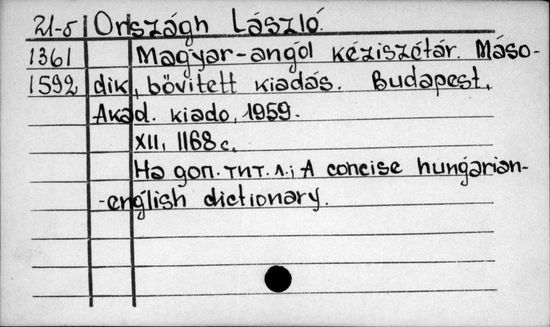 21-5 Országh László.
1361 Magyar-angol kéziszótár. Máso-
1592 dik, bővített kiadás. Budapest,
Akad. kiado, 1959.
XII, 1168 c.
На доп. тит. л.: A concise hungarian-
-english dictionary.